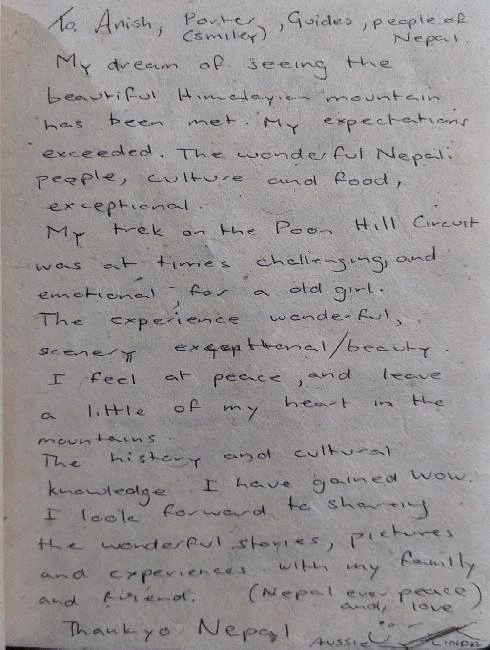 To, Anish, Porter (smiley), Guides, people of Nepal.
My dream of seeing the
beautiful Himalayien mountain
has been met. My expectations
exceeded. The wonderful Nepali
people, culture and food,
exceptional.
My trek on the Poon Hill Circuit
was at times challenging, and
emotional, for a old girl.
The experience wonderful,
scenery exceptional/beauty.
I feel at peace, and leave
a little of my heart in the
mountains.
The history and cultural
knowledge I have gained wow.
I look forward to sharing
the wonderful stories, pictures
and experiences with my family
and friend. (Nepal ever peace)
and, love
Thankyo Nepal AUSSIE LINDA